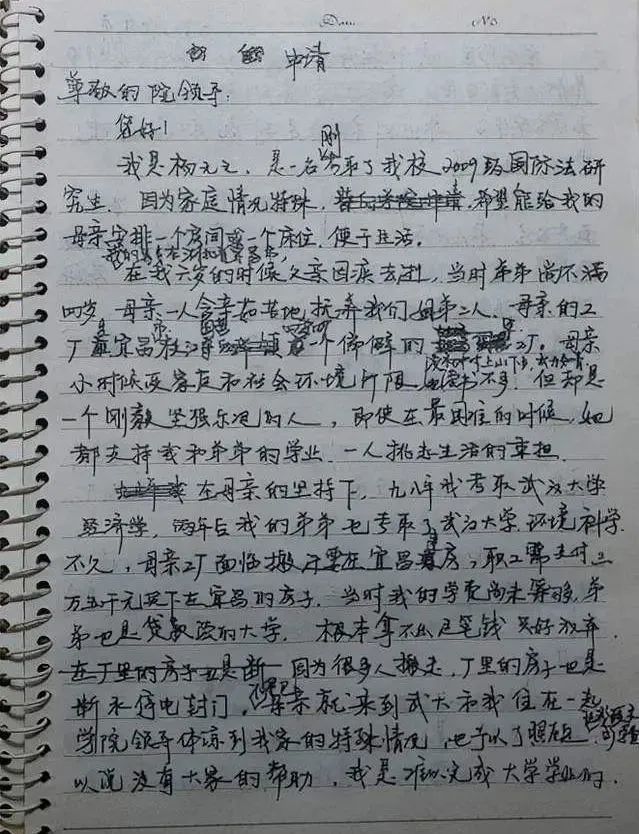 Da... No
申请
尊敬的院领导:
您好!
我是杨元元,是一名刚考取了我校2009级国际法研
究生.因为家庭情况特殊,希望能给我的
母亲安排一个房间或一个床位,便于生活.
在我六岁的时候父亲因病去逝,当时弟弟尚不满
四岁.母亲一人含辛如苦地抚养我们姐弟二人.母亲的工
厂是宜昌市 一个 的 工厂。母亲
小时候受家庭和社会环境所限 书不多.但却是
一个刚毅坚强乐观的人,即使在最困难的时候,她
都支持我和弟弟的学业.一人挑起生活的重担.
在母亲的坚持下,九八年我考取武汉大学
经济学,两年后我的弟弟也考取了武汉大学环境科学.
不久,母亲工厂面临搬 要在宜昌 房,职工需支付三
万五千元买下在宜昌的房子.当时我的学费尚未筹够,弟
弟也是贷款读的大学.根本拿不出这笔钱只好放弃.
在厂里的房子也是断 因为很多人搬走,厂里的房子也是
断水停电封门, 母亲就来到武大和我住在一起
学院领导体谅到我家的特殊情况,也予以了照顾. 可
以说没有大家的帮助,我是难以完成大学学业的.